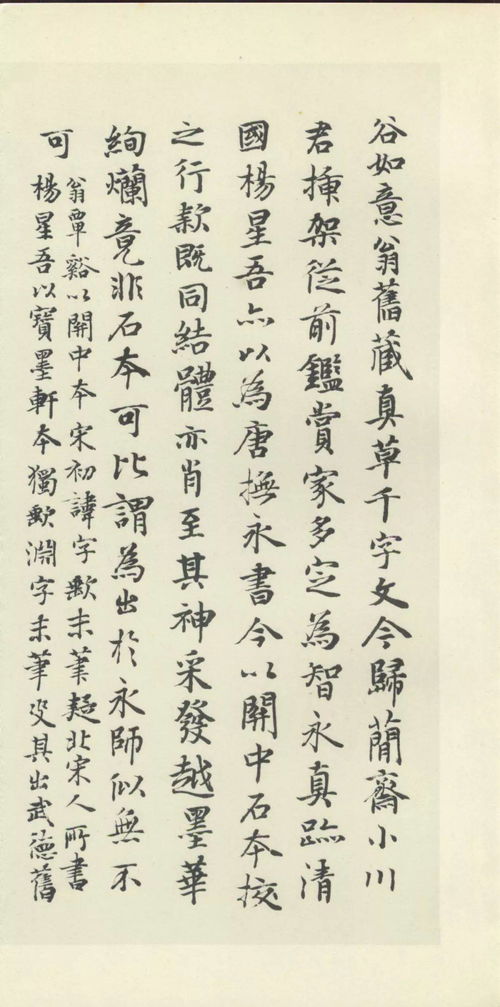 谷如意翁舊藏真草千字文今歸蕳齋小川
君揷架從前鑑賞家多定為智永真跡清
國楊星吾亦以為唐橅永書今以關中石本挍
之行款既同結體亦肖至其神采發越墨華
絢爛竟非石本可比謂為出於永師似無不
可
翁覃谿以關中本宋初諱字歘末筆疑北宋人所書
楊星吾以寶墨軒本獨歘淵字末筆定其出武德舊